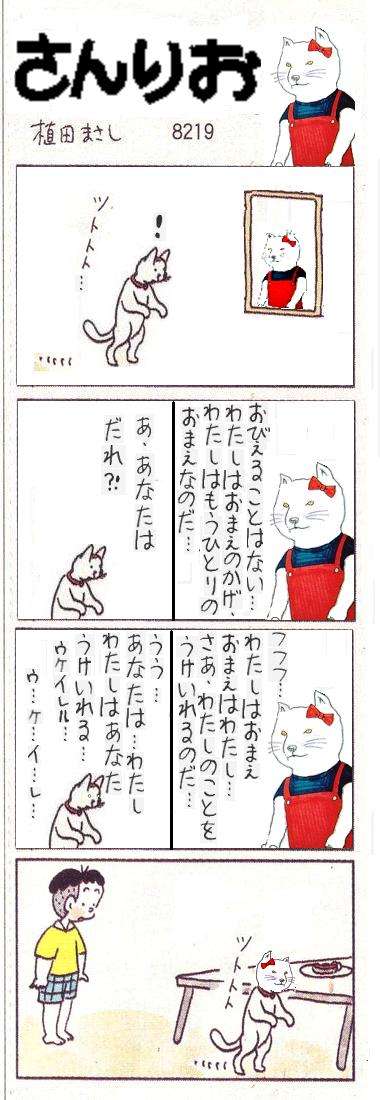 さんりお
植田まさし
8219
!
ツトトトト…
おびえることはない…
わたしはおまえのかげ、
わたしはもうひとりの
おまえなのだ…
あ、あなたは
だれ?!
フフフ…
わたしはおまえ
おまえはわたし…
さあ、わたしのことを
うけいれるのだ…
うう…
あなたは…わたし
わたしはあなた
うけいれる…
ウケイレル…
ウ…ケ…イ…レ…
ツトトトト